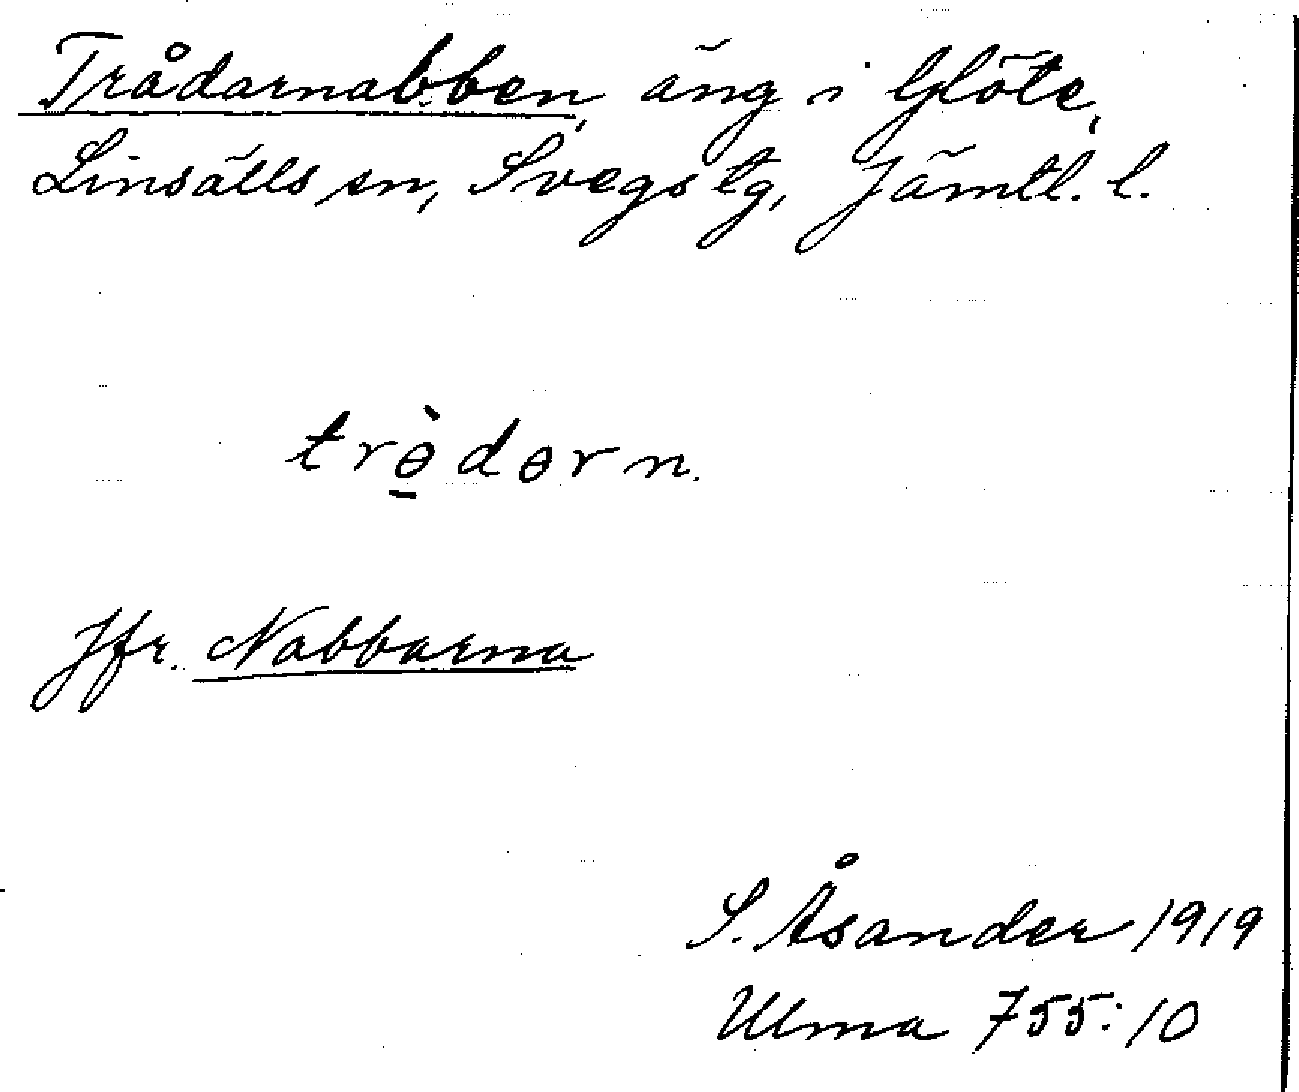 Trådarnabben, äng i Glöte,
Linsälls sn, Svegs tg, Jämtl. l.
trɵ̠̀dɵrn.
Jfr. Nabbarna
S. Åsander 1919
Ulma 755:10